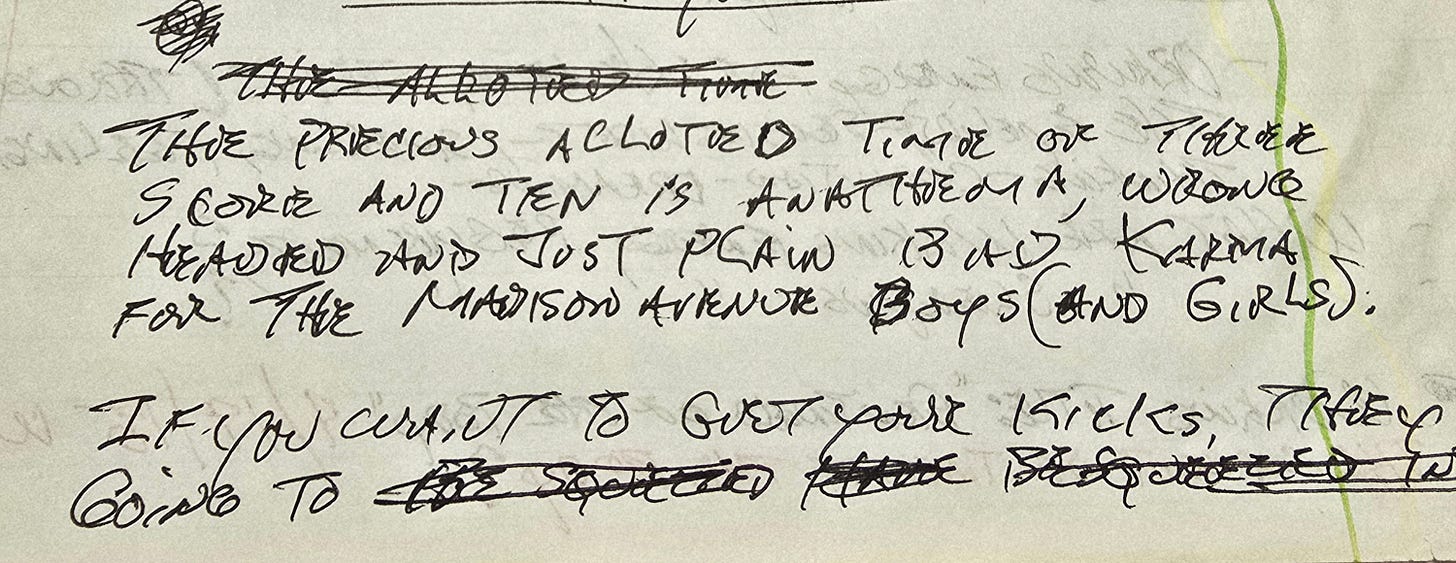 THE ALLOTED TIME
THE PRECIOUS ALLOTED TIME OF THREE
SCORE AND TEN IS ANATHEMA, WRONG
HEADED AND JUST PLAIN BAD KARMA
FOR THE MADISON AVENUE BOYS (AND GIRLS).
IF YOU WANT TO GET YOUR KICKS, THEY
GOING TO BE SQUEEZED HAVE BE SQUEEZED IN